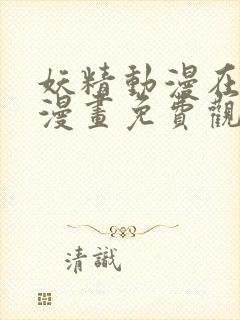 妖精動漫在
漫畫免費觀
清識